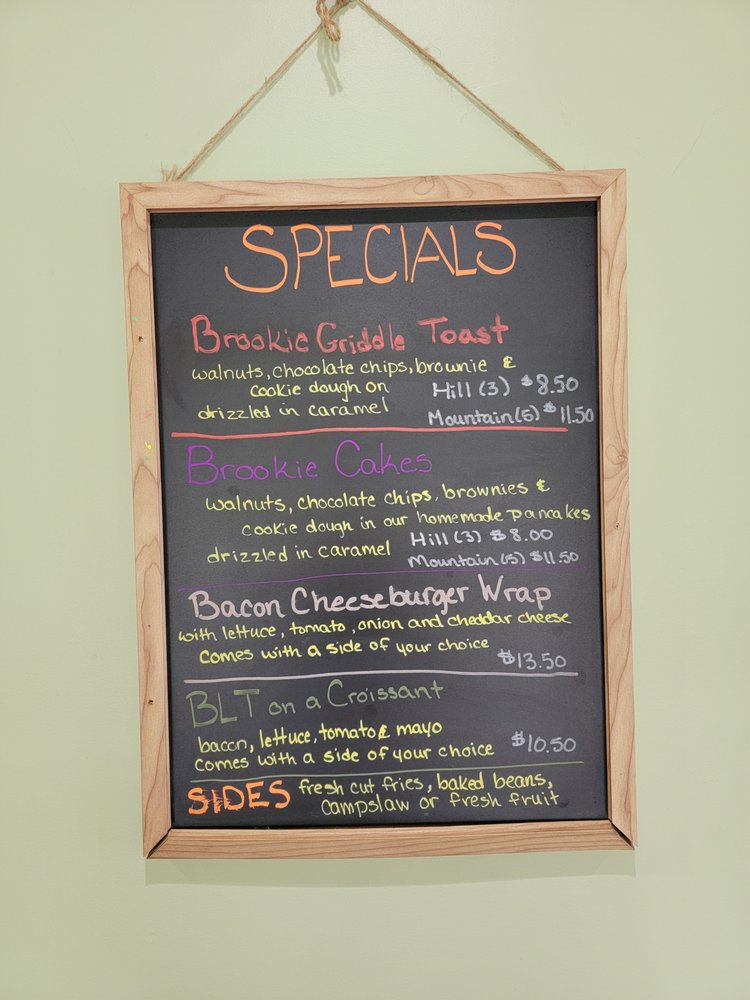 SPECIALS
Brookie Griddle Toast
walnuts, chocolate chips, brownie &
cookie dough on Hill (3) $8.50
drizzled in caramel Mountain (5) $11.50
Brookie Cakes
walnuts, chocolate chips, brownies &
cookie dough in our homemade pancakes
drizzled in caramel Hill (3) $8.00
Mountain (5) $11.50
Bacon Cheeseburger Wrap
with lettuce, tomato, onion and cheddar cheese
comes with a side of your choice
$13.50
BLT on a Croissant
bacon, lettuce, tomato & mayo
comes with a side of your choice $10.50
SIDES fresh cut fries, baked beans,
campslaw or fresh fruit